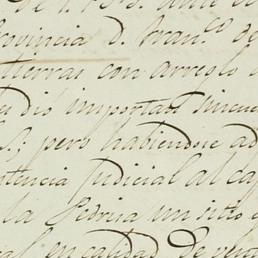 Provincia D. Franco de
tierras con arreglo
dió important
S; pero habiendose ad
tencia judicial al ca
la Pedriza un sitio
en calidad de